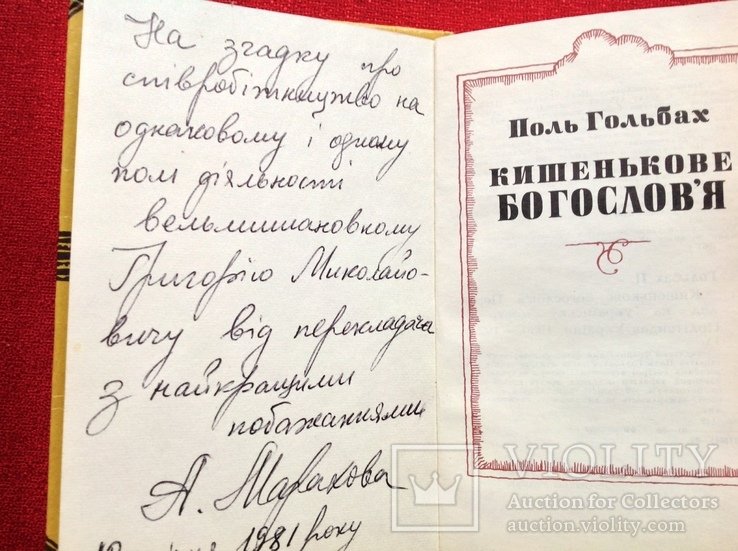 На згадку про
співробітництво на
однаковому і одному
полі діяльності
вельмишановному
Григорію Миколайо-
вичу від перекладача
з найкращими
побажаннями
А.
1981 року
Поль Гольбах
КИШЕНЬКОВЕ
БОГОСЛОВ'Я
VIOLITY
Auction for Collectors
auction.violity.com